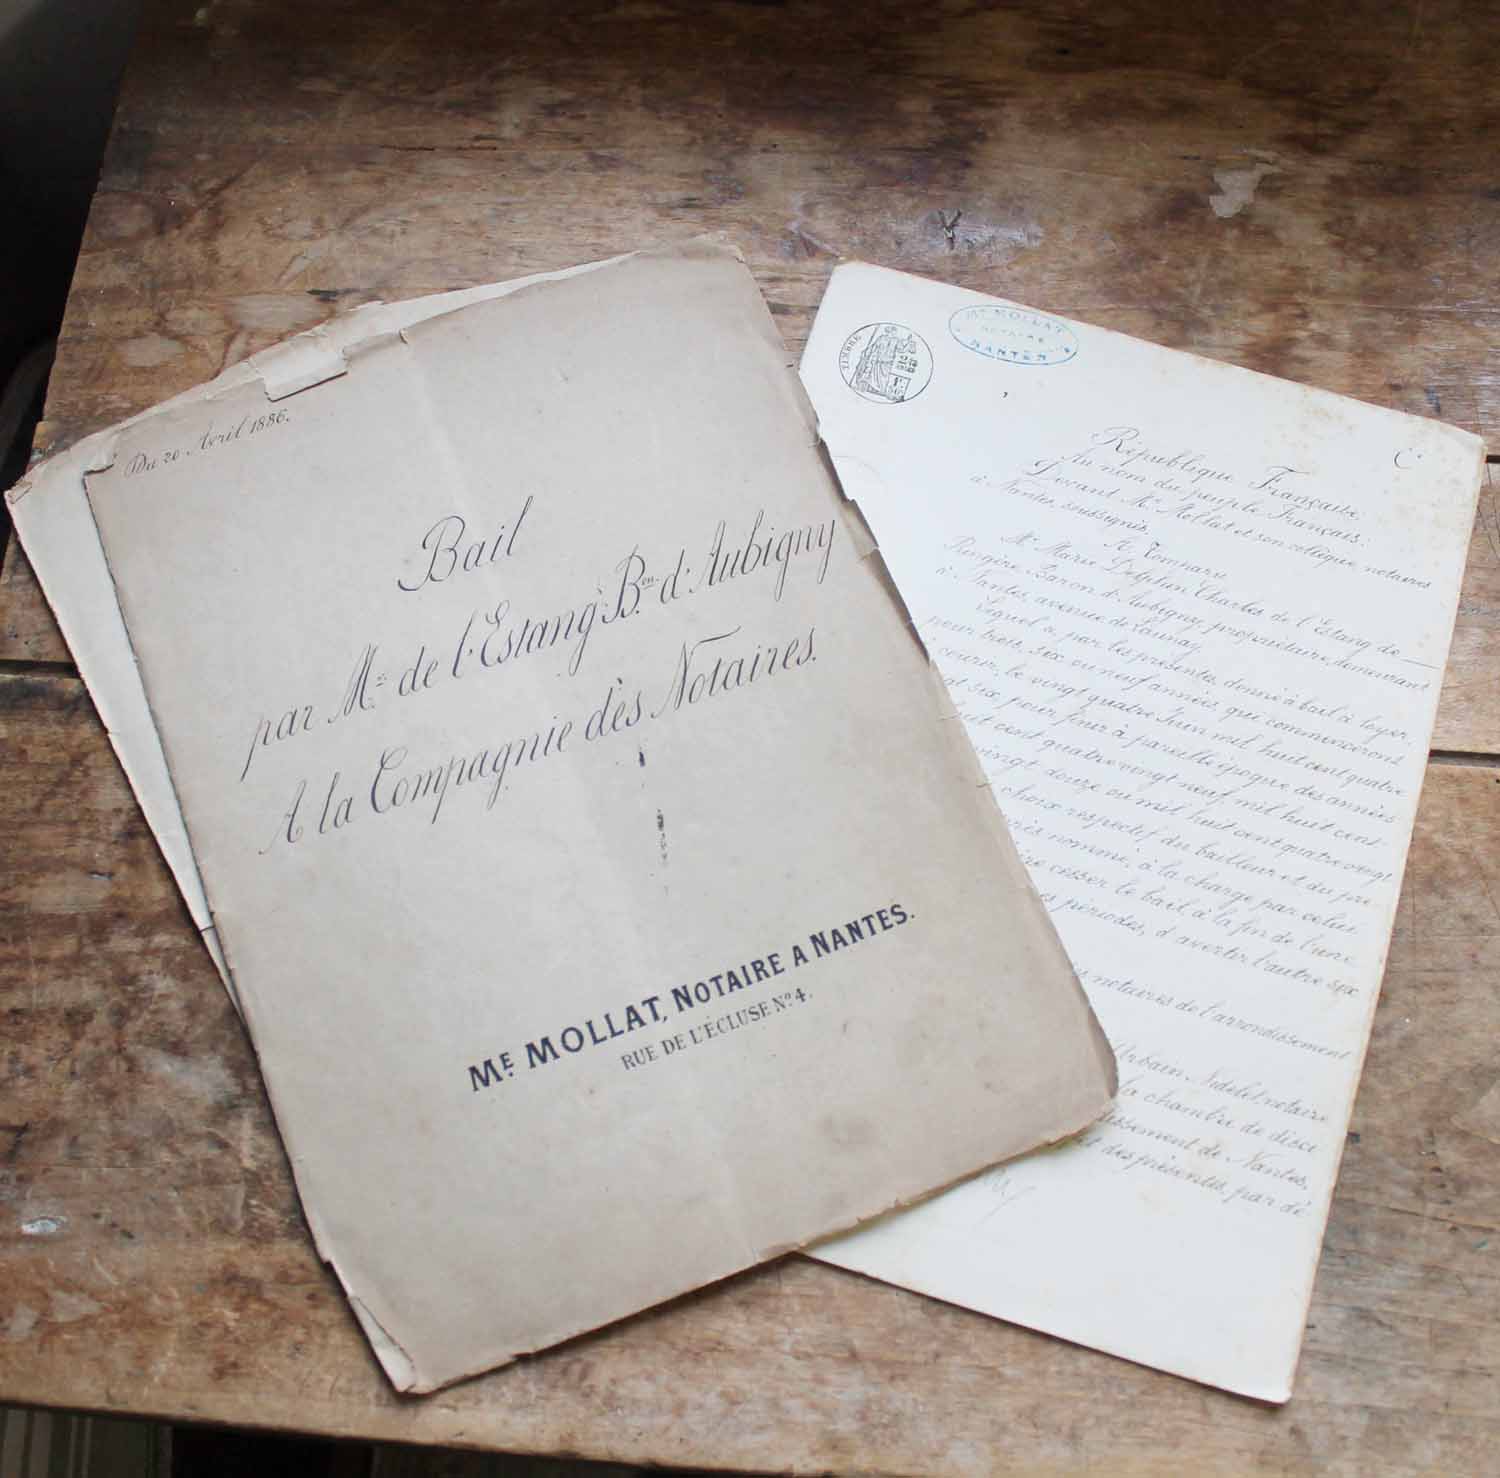 Du 20 Avril 1886.
Bail
par Mr. de l'Estang Bon. d'Aubigny
A la Compagnie des Notaires.
ME. MOLLAT, NOTAIRE A NANTES.
RUE DE L'ÉCLUSE No. 4.
TIMBRE
Me MOLLAT
NOTAIRE
NANTES
République Française
Au nom du peuple Français:
Devant Me Mollat et son collègue notaires
à Nantes, soussignés.
A Comparu
Mr Marie Delphin Charles de l'Estang de
Ringère Baron d'Aubigny, propriétaire, demeurant
à Nantes, avenue de Launay.
Lequel a, par les présentes, donné à bail à loyer,
pour trois, six ou neuf années qui commenceront
courir, le vingt quatre Juin mil huit cent quatre
six pour finir à pareille époque des années
huit cent quatre vingt neuf, mil huit cent
vingt douze ou mil huit cent quatre vingt
choix respectif du bailleur et du pre
nommé, à la charge par celui
cesser le bail, à la fin de l'une
périodes, d'avertir l'autre six
notaires de l'arrondissement
Urbain notaire
la chambre de disci
de Nantes,
des présentes, par dé